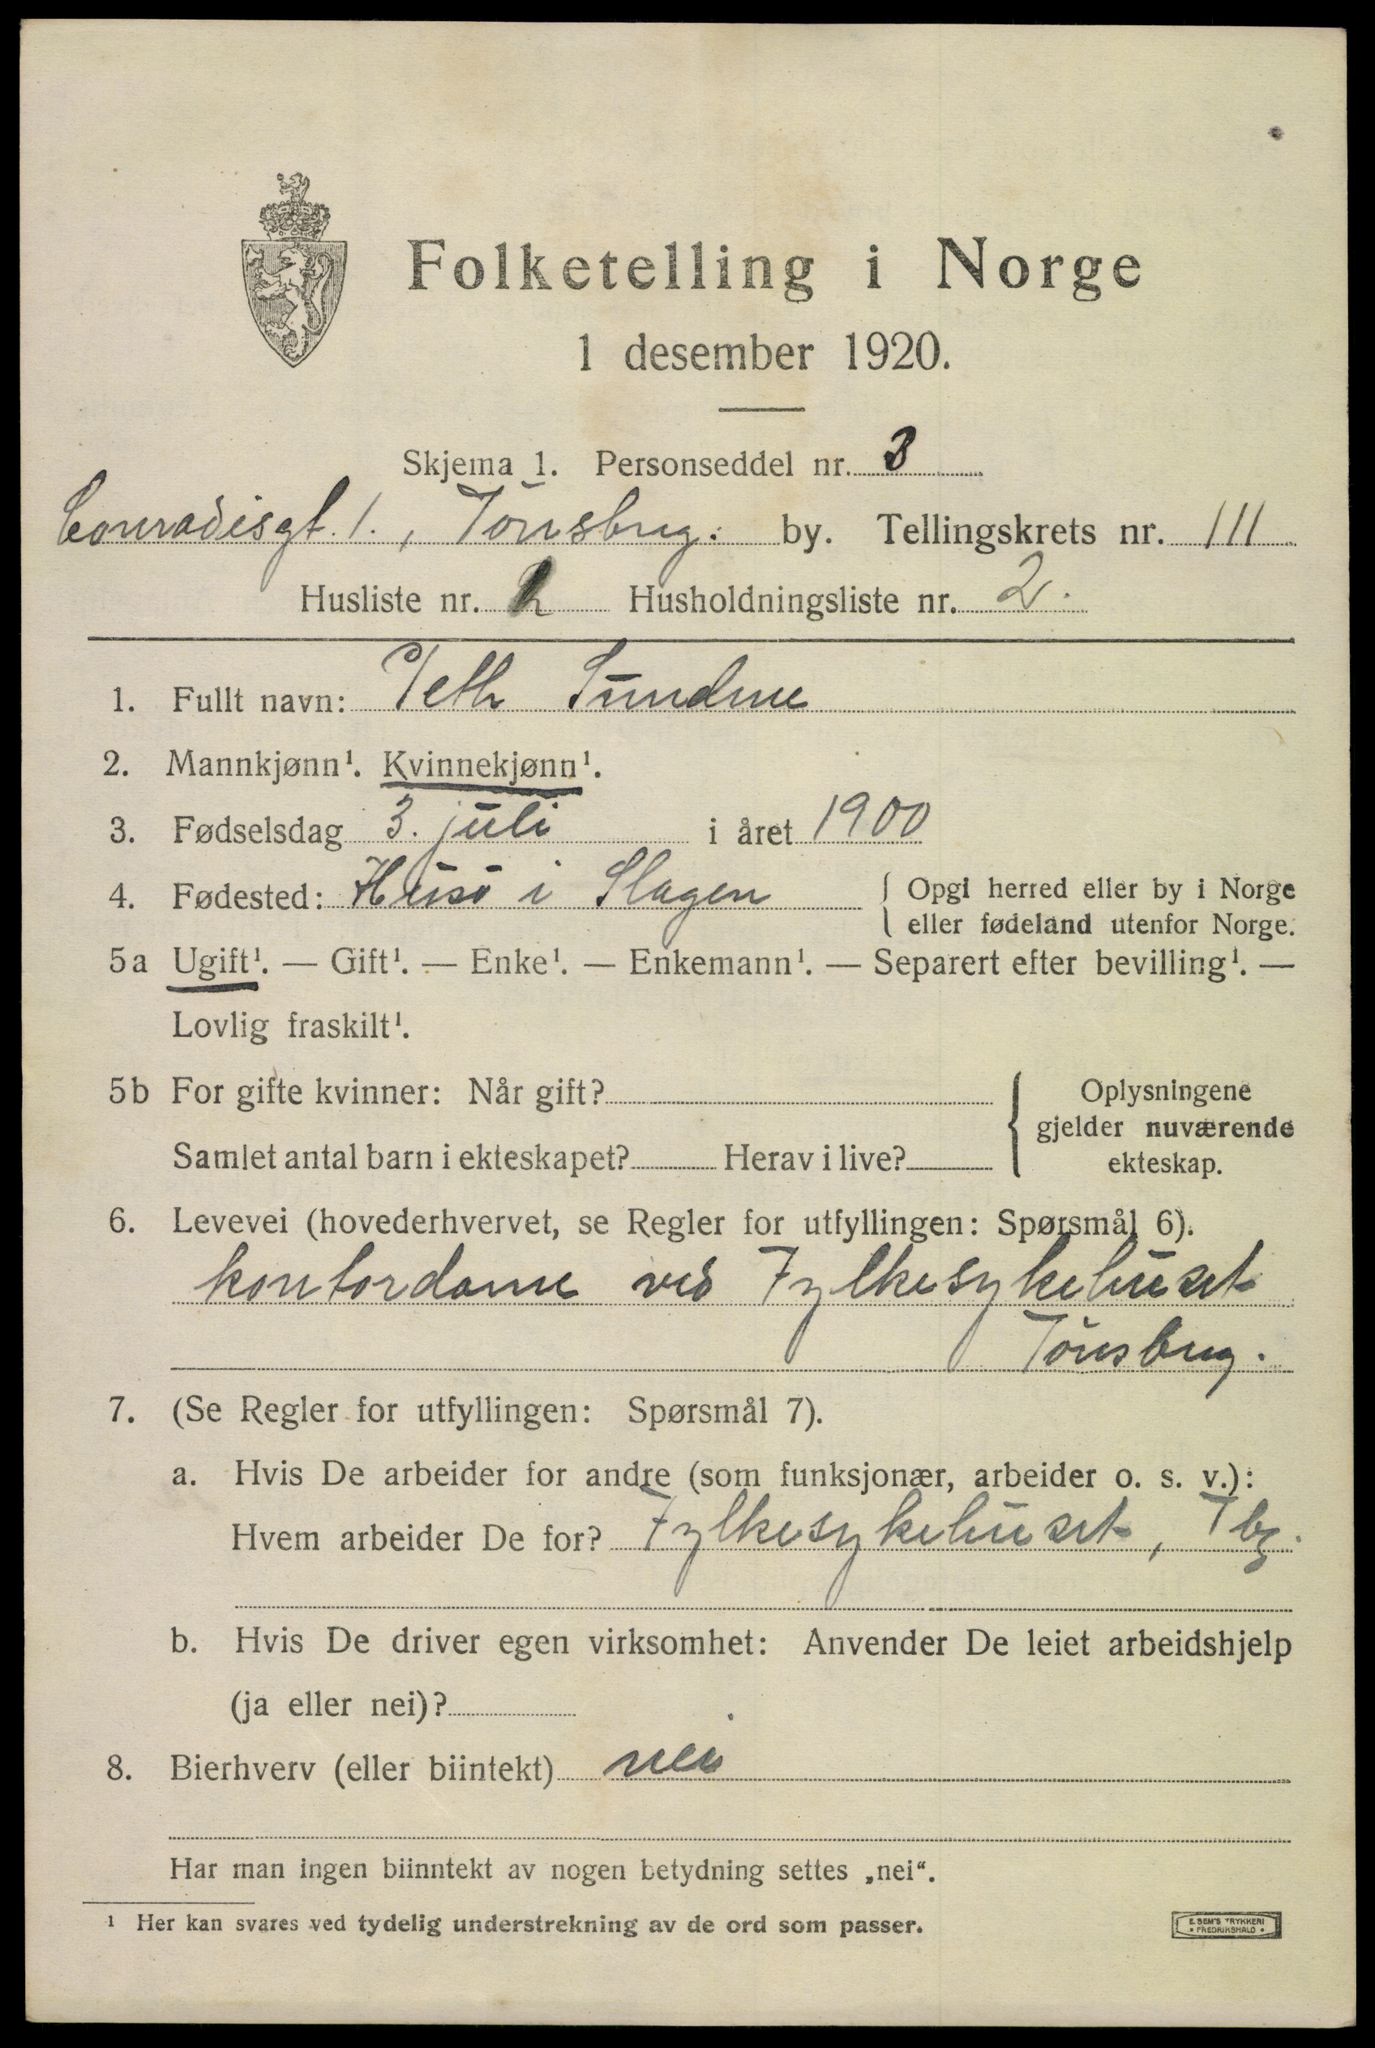 Folketelling i Norge
1 desember 1920.
Skjema 1. Personseddel nr. 3
Conradisgt. 1., Tönsbrg. by. Tellingskrets nr. 111
Husliste nr. 2 Husholdningsliste nr. 2.
1. Fullt navn:
2. Mannkjønn¹. Kvinnekjønn¹.
3. Fødselsdag 3. juli i året 1900
4. Fødested: Husö i Slagen { Opgi herred eller by i Norge
eller fødeland utenfor Norge.
5a Ugift¹. — Gift¹. — Enke¹. — Enkemann¹. — Separert efter bevilling¹. —
Lovlig fraskilt¹.
5b For gifte kvinner: Når gift? { Oplysningene
gjelder nuværende
Samlet antal barn i ekteskapet? Herav i live? ekteskap.
6. Levevei (hovederhvervet, se Regler for utfyllingen: Spørsmål 6).
kontordame ved Fylkesykehuset
Tönsbrg.
7. (Se Regler for utfyllingen: Spørsmål 7).
a. Hvis De arbeider for andre (som funksjonær, arbeider o. s. v.):
Hvem arbeider De for? Fylkesykehuset, Tbg.
b. Hvis De driver egen virksomhet: Anvender De leiet arbeidshjelp
(ja eller nei)?
8. Bierhverv (eller biintekt) nei
Har man ingen biinntekt av nogen betydning settes „nei“.
¹ Her kan svares ved tydelig understrekning av de ord som passer.
E. SEM'S TRYKKERI
• FREDRIKSHALD •